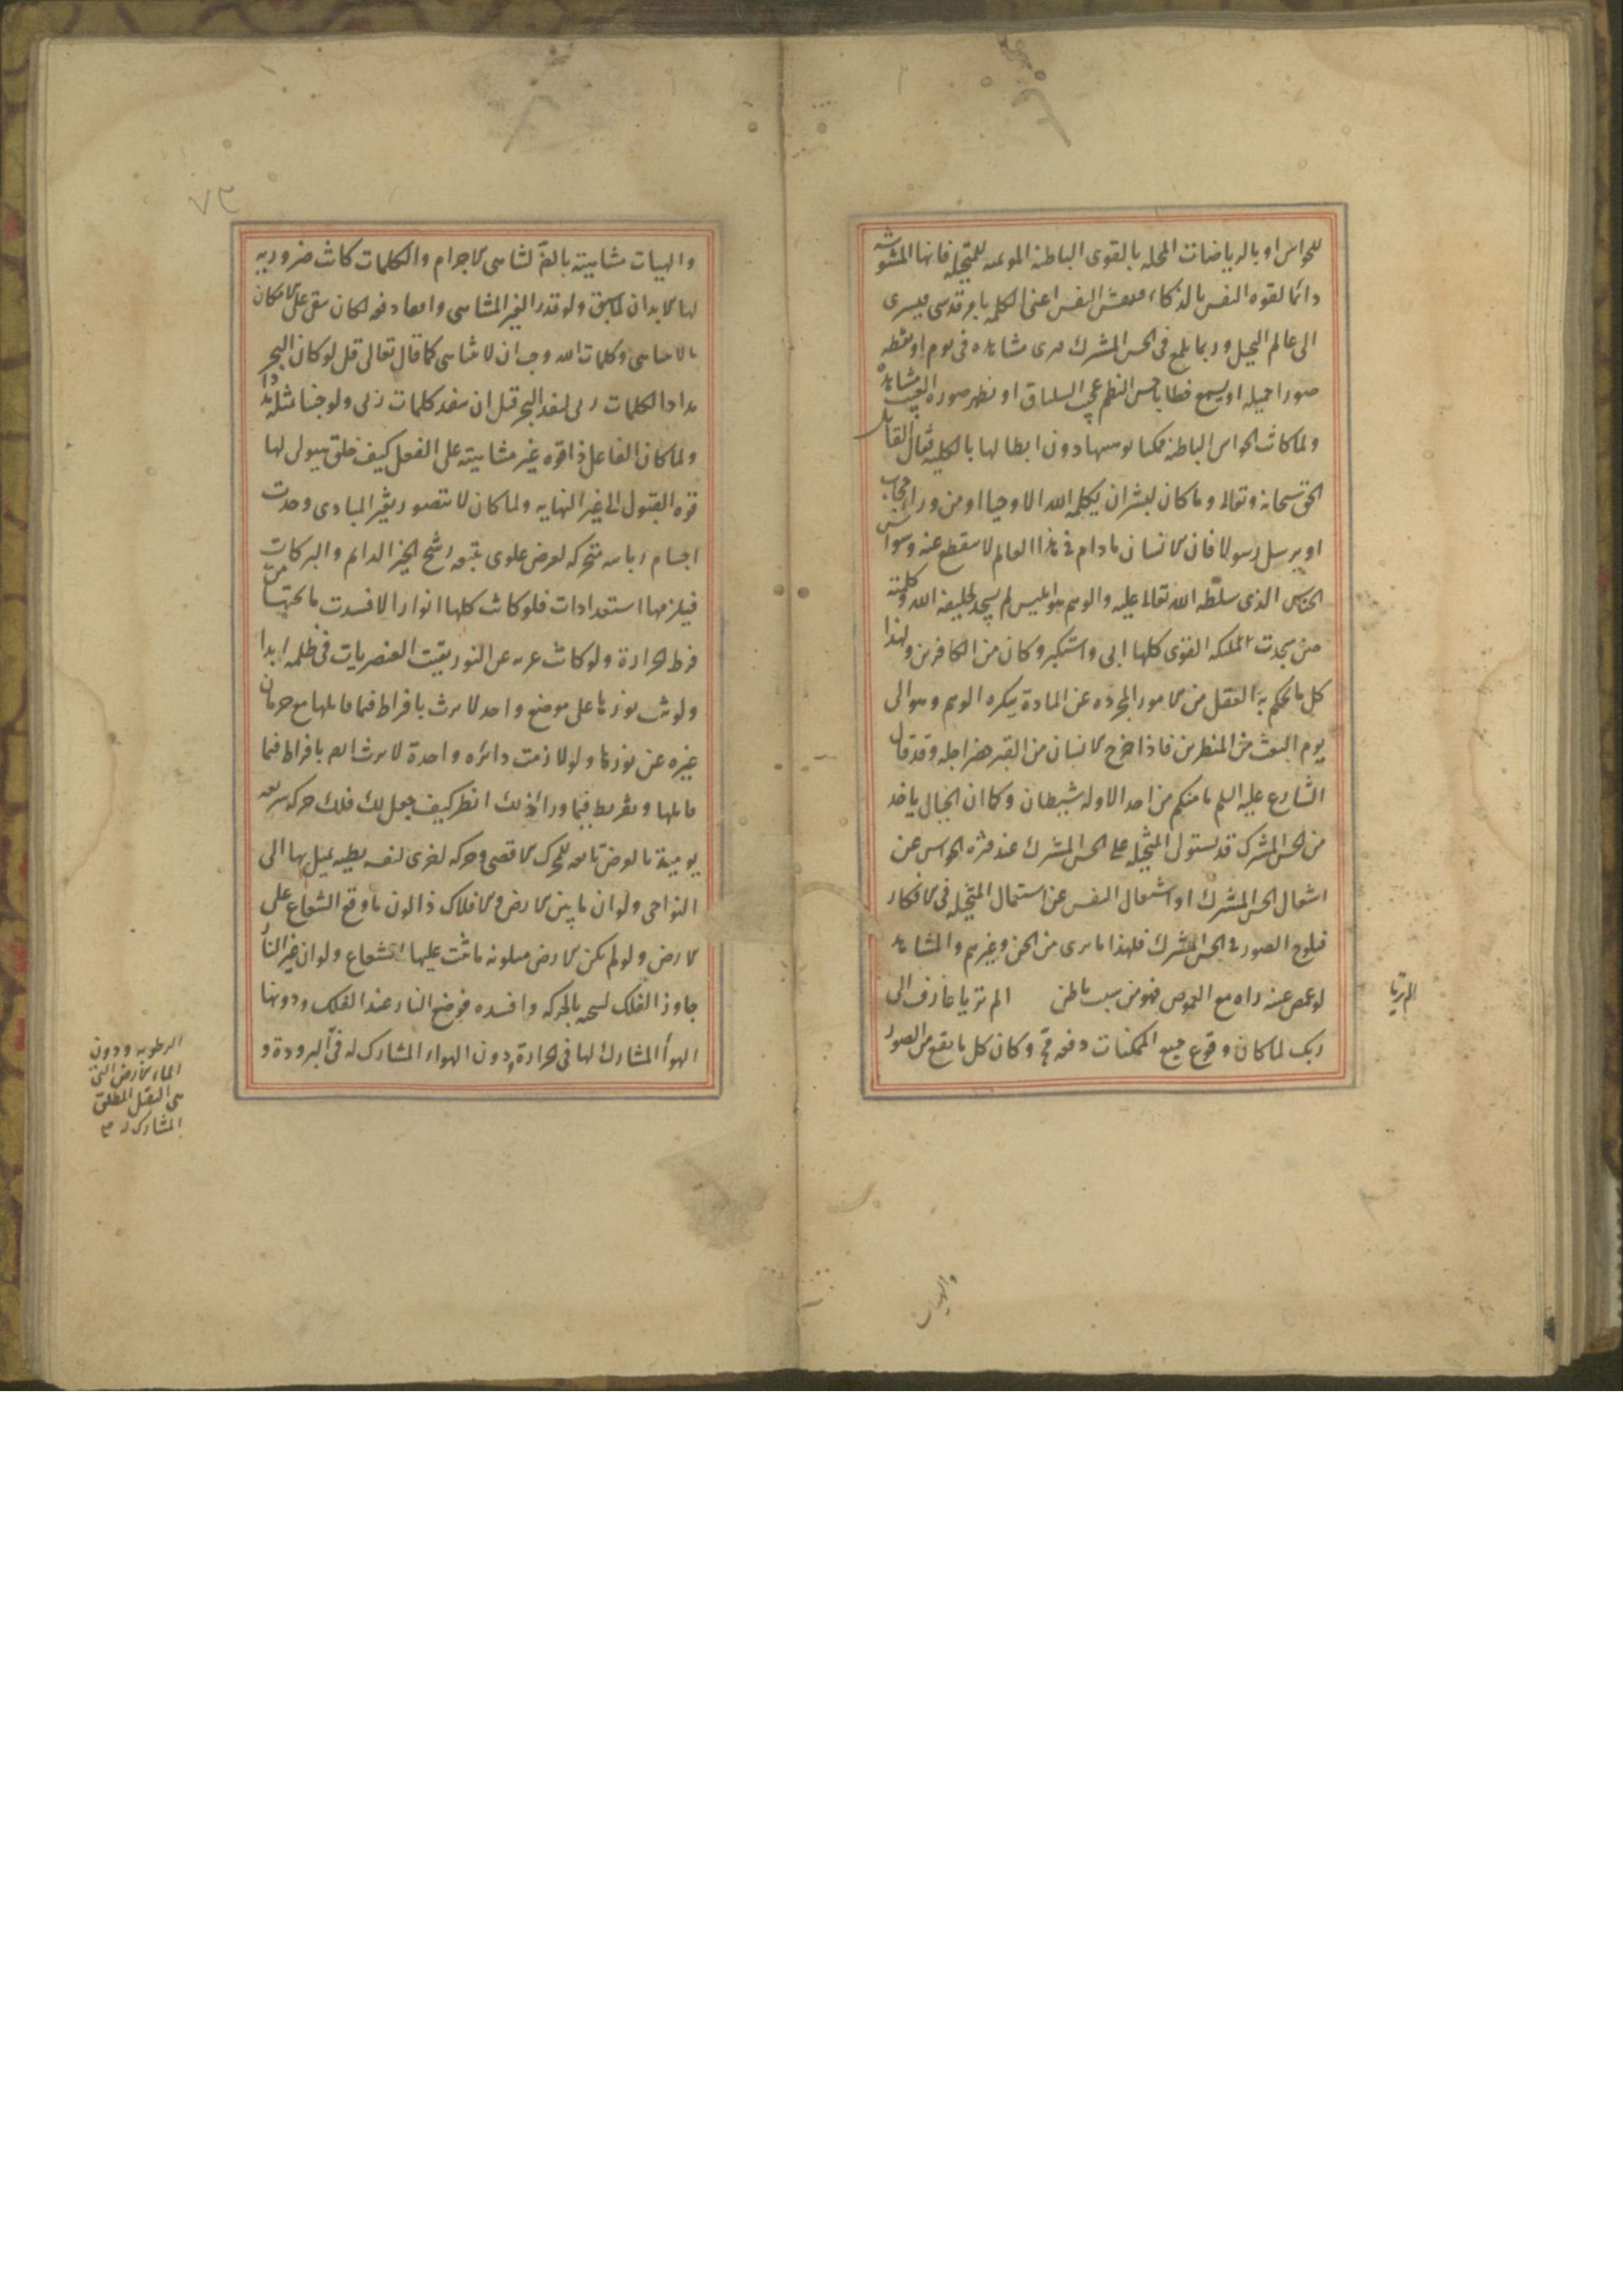 للحواس او بالرياضات المخله بالقوى الباطنة الموهنه للمتخيله فانها المشوشه
دائما لقوه النفس بالذكاء فينتقش النفس اعنى الكلمه بامر قدسى فيسرى
الى عالم التخيل وربما يلمع فى الحس المشترك فيرى مشاهده فى نوم او يقظه
صورا جميله او يسمع خطابا حسن النظم عجيب السياق او يظهر صورة الغيب مشاهدة
ولما كانت الحواس الباطنة ممكنا توهينها دون ابطالها بالكليه فقال القائل
الحق سبحانه وتعالى وما كان لبشر ان يكلمه الله الا وحيا او من وراء حجاب
او يرسل رسولا فان الانسان مادام فى هذا العالم لا ينقطع عنه وسواس
الخناس الذى سلطه الله تعالى عليه والوهم هو ابليس لم يسجد لخليفة الله وكلمته
حين سجدت الملئكه القوى كلها ابى واستكبر وكان من الكافرين ولهذا
كل ما يحكم به العقل من الامور المجرده عن المادة ينكره الوهم وهو الى
يوم البعث من المنظرين فاذا خرج الانسان من القبر حضر اجله وقد قال
الشارع عليه السلم ما منكم من احد الا وله شيطان وكما ان الخيال ياخذ
من الحس المشترك قد يستولى المتخيله على الحس المشترك عند فترة الحواس عن
اشغال الحس المشترك او اشتغال النفس عن استعمال المتخيله فى الافكار
فيلوح الصور فى الحس المشترك فلهذا ما يرى من الجن وغيرهم والمشاهد
لو غمض عينه راه مع الغموض فهو من سبب باطن الم تر يا عارف الى
ربك لما كان وقوع جميع الممكنات دفعه وكان كل ما يقع من الصور
الم تر يا
والهيات
٧٣
والهيات متناهية بالضرورة لتناهى الاجرام والكلمات كانت ضروريه
لها الابدان لما سبق ولو قدر الغير المتناهى واقعا دفعه لكان بقى على الامكان
ما لا يتناهى وكلمات الله وجب ان لا تتناهى كما قال تعالى قل لو كان البحر
مدادا لكلمات ربى لنفد البحر قبل ان تنفد كلمات ربى ولو جئنا بمثله مددا
ولما كان الفاعل ذا قوه غير متناهية على الفعل كيف خلق هيولى لها
قوه القبول الى غير النهايه ولما كان لا يتصور بغير المبادى وحدت
اجسام متحركه لغرض علوى يتبعه رشح الخير الدائم والبركات
فيلزمها استعدادات فلو كانت كلها انوارا لافسدت ما تحتها من
فرط الحرارة ولو كانت عريه عن النور بقيت العنصريات فى ظلمه ابدا
ولو ثبت نورها على موضع واحد لاثرت بافراط فيما قابلها مع حرمان
غيره عن نورها ولو لازمت دائره واحدة لاثرت ايضا بافراط فيما
قابلها وتفريط فيما وراء ذلك انظر كيف جعل لك فلك حركه سريعه
يومية بالعرض تابعه للمحرك الاقصى وحركه اخرى لنفسه بطيه يميل بها الى
النواحى ولو ان ما بين الارض والافلاك ذا لون ما وقع الشعاع على
الارض ولو لم يكن الارض ملونه ما ثبت عليها الشعاع ولو ان غير النار
جاور الفلك لسخنه بالحركه وافسده فوضع النار عند الفلك ودونها
الهوا المشارك لها فى الحرارة ودون الهواء المشارك له فى البرودة و
الرطوبه ودون
الماء الارض التى
هى الثقل المطلق
المشارك له